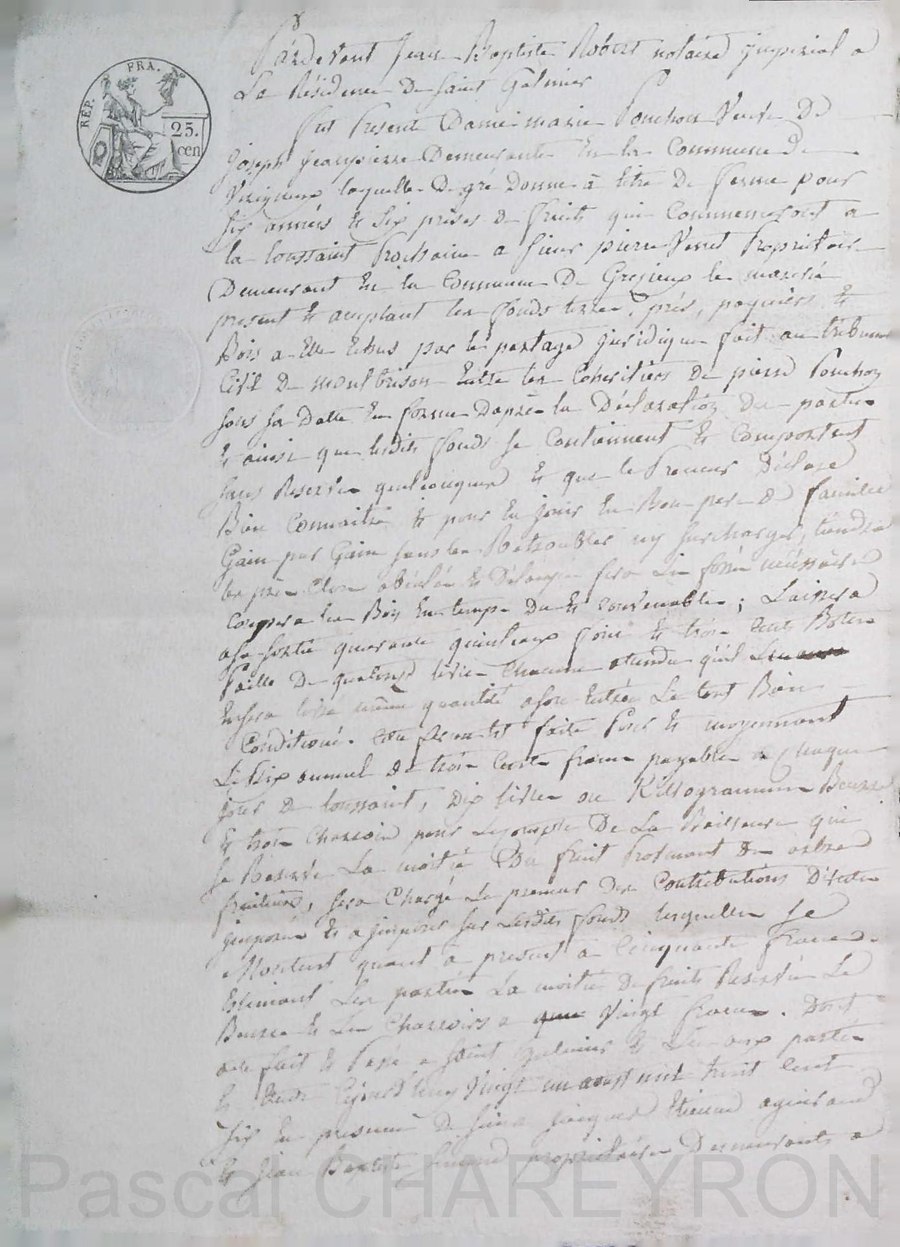 RÉP. FRA.
25.
cen
Pardevant Jean Baptiste Robert notaire Imperial a
La Résidence De Saint Galmier
fut Presente Dame marie Ponchon Veuve De
Joseph Jeanpierre Demeurante En la Commune De
Virigneux laquelle De gré Donne à titre De ferme pour
Six années Et Six prises De fruits qui Commenceront a
la toussaint Prochaine a Sieur pierre Venet Propriétaire
Demeurant En la Commune De Grezieux le marché
present Et acceptant les fonds terres, prés, paquiers Et
Bois a Elle Echus par le partage juridique fait au tribunal
Civil De montbrison Entre les Coheritiers De pierre Ponchon
sous sa Datte En forme Daprès la Déclaration Des parties
Et ainsi que lesdits fonds se Contiennent Et Comportent
sans Reserve quelconque Et que le Preneur Déclare
Bien Connaitre Et pour En jouir En Bon pere De famille
Gain par Gain sans les ny surcharger, tiendra
les près Clos Et fera les fossés nécessaires
Coupera les Bois En temps Du Et Convenable ; Laissera
a sa sortie quarante quintaux foins Et trois Cent Bottes
Paille De quatorze livres Chacune attendu qu'il
même quantité a son Entrée Le tout Bien
Conditioné. faite Pour Et moyennant
Le Prix annuel De trois Cents francs payable a Chaque
jour De toussaint, Dix livres ou Killogrammes Beurre
Et trois Charrois pour Le Compte De La Bailleuse qui
se Reserve La moitié Du fruit Provenant Des arbres
fruitiers, sera Chargé Le preneur Des Contributions Directes
imposées Et a imposer sur lesdits fonds lesquelles se
Montent quant à present à Cinquante francs.
Estimant Les parties La moitié De fruits Reservée Le
Beurre Et Les Charrois a Vingt francs. Dont
acte fait Et Passé a Saint Galmier Et Lu aux parties
Et Cejourd'huy Vingt un aoust mil huit Cent
Six En presence De Sieurs jacques Etienne
Et jean Baptiste propriétaires Demeurants a
Pascal CHAREYRON